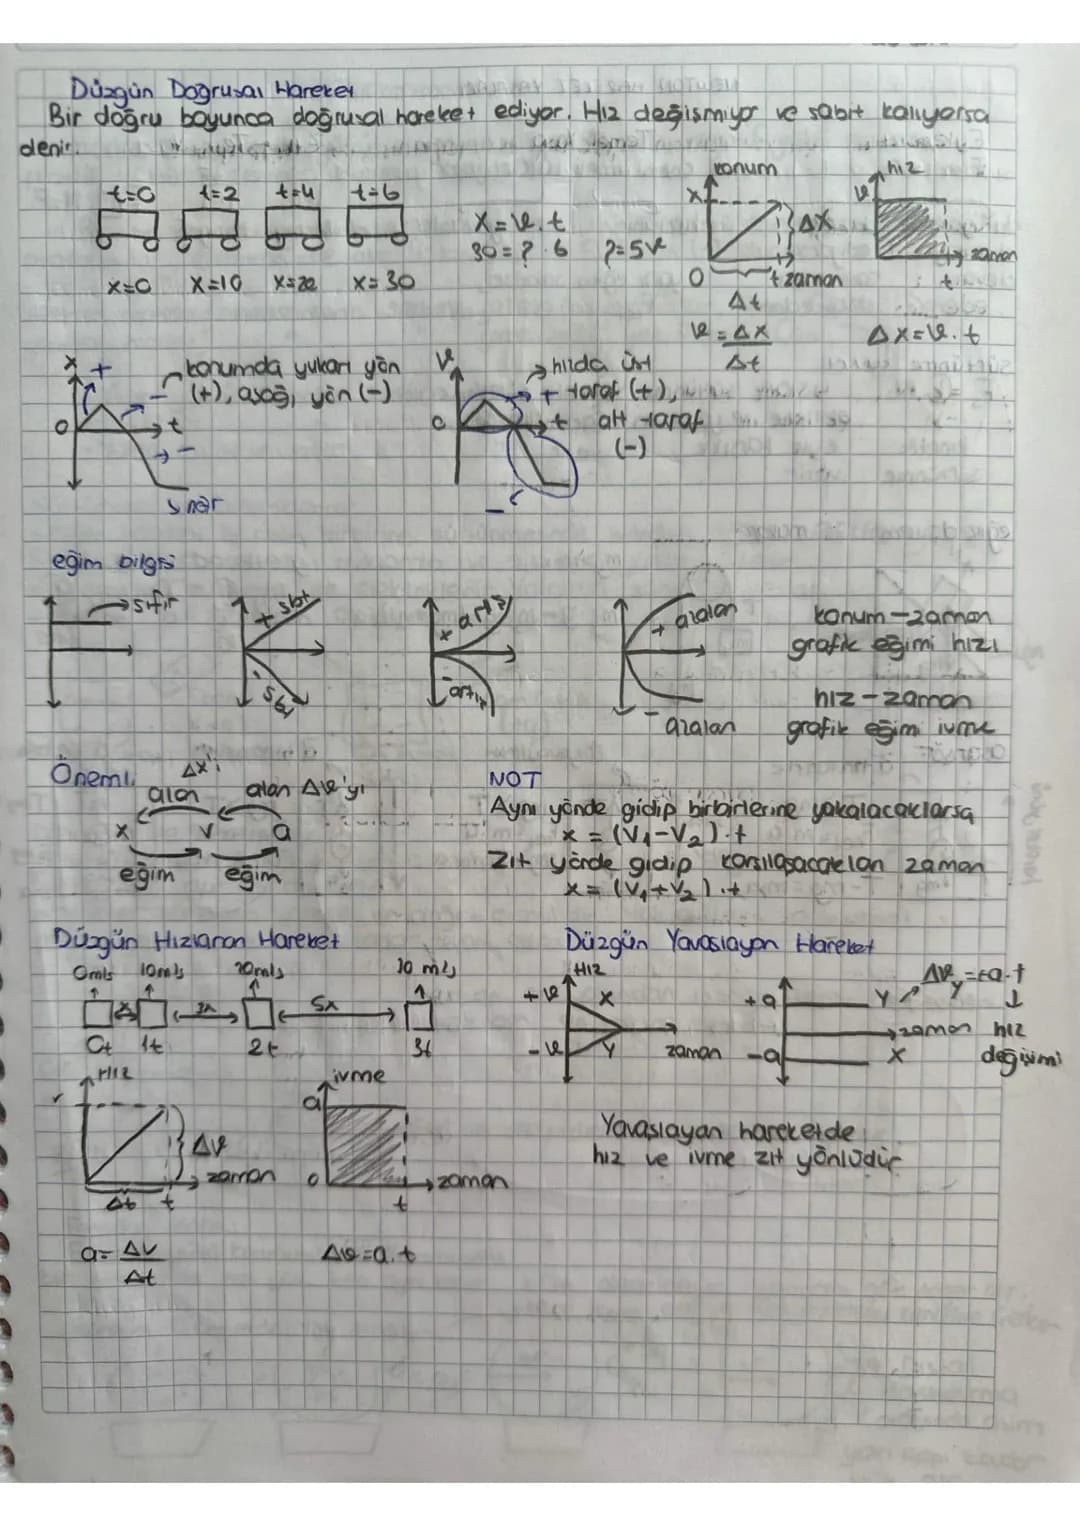 Düzgün Doğrusal Hareket
Bir doğru boyunca doğrusal hareket ediyor. Hız değişmiyor ve sabit kalıyorsa
denir.
t=0 t=2 t=4 t=6
x=0 x=10 x=20 x=30
x=v.t
30=?.6 ?=5v
konum
x
Δx
0 t zaman
Δt
v=Δx/Δt
hız
v
zaman
t
Δx=v.t
x + -
0 t
-
konumda yukarı yön
(+), aşağı yön (-)
v
0 t
+
-
hızda üst
taraf (+),
alt taraf
(-)
eğim bilgsi
sıfır
+ sbt
- sbt
+ artış
- artış
+ azalan
- azalan
konum-zaman
grafik eğimi hızı
hız-zaman
grafik eğimi ivme
Önemli
Δx'i
alan alan Δv'yı
x v a
eğim eğim
NOT
Aynı yönde gidip birbirlerine yakalacaklarsa
x = (V₁-V₂).t
Zıt yönde gidip karsılaşacakları zaman
x= (V₁+V₂).t
Düzgün Hızlanan Hareket
0m/s 10m/s 20m/s 30 m/s
x 3x 5x
0t 1t 2t 3t
Hız
v
Δv
zaman
Δt t
a= Δv/Δt
ivme
a
0 zaman
t
Δv=a.t
Düzgün Yavaslayan Hareket
Hız
+v x
-v y zaman
+a y
zaman
-a x
Δvy=+a.t
hız
değişimi
Yavaslayan harekette
hız ve ivme zıt yönlüdür